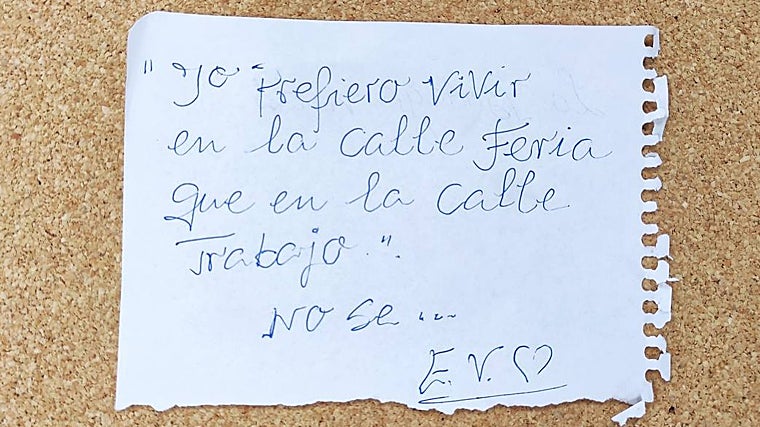 " Yo Prefiero vivir
en la calle Feria
que en la calle
Trabajo.".
NO SE ...
E. V. ♡